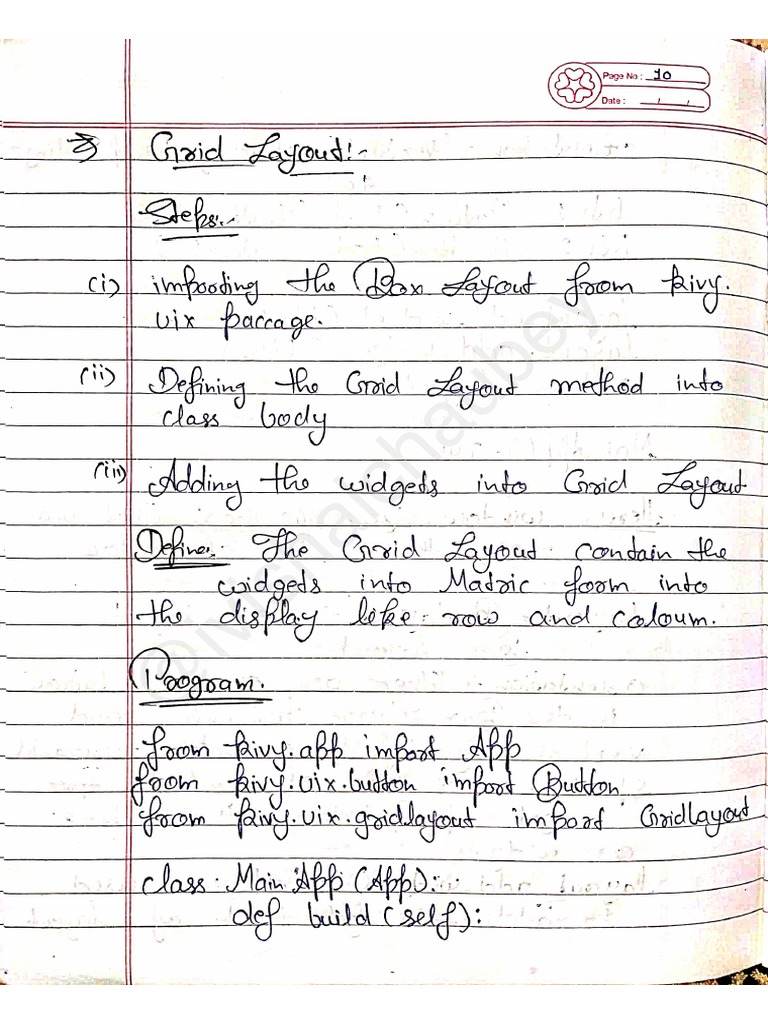 Page No: 10
Date: / /
Grid Layout:-
Steps:-
(i) importing the Box Layout from kivy.
uix paccage.
(ii) Defining the Grid Layout method into
class body
(iii) Adding the widgets into Grid Layout
Define:- The Grid Layout contain the
widgets into Matric form into
the display like row and coloum.
Program.
from kivy.app import App
from kivy.uix.button import Button
from kivy.uix.gridlayout import Gridlayout
class Main App (App):
def build (self):